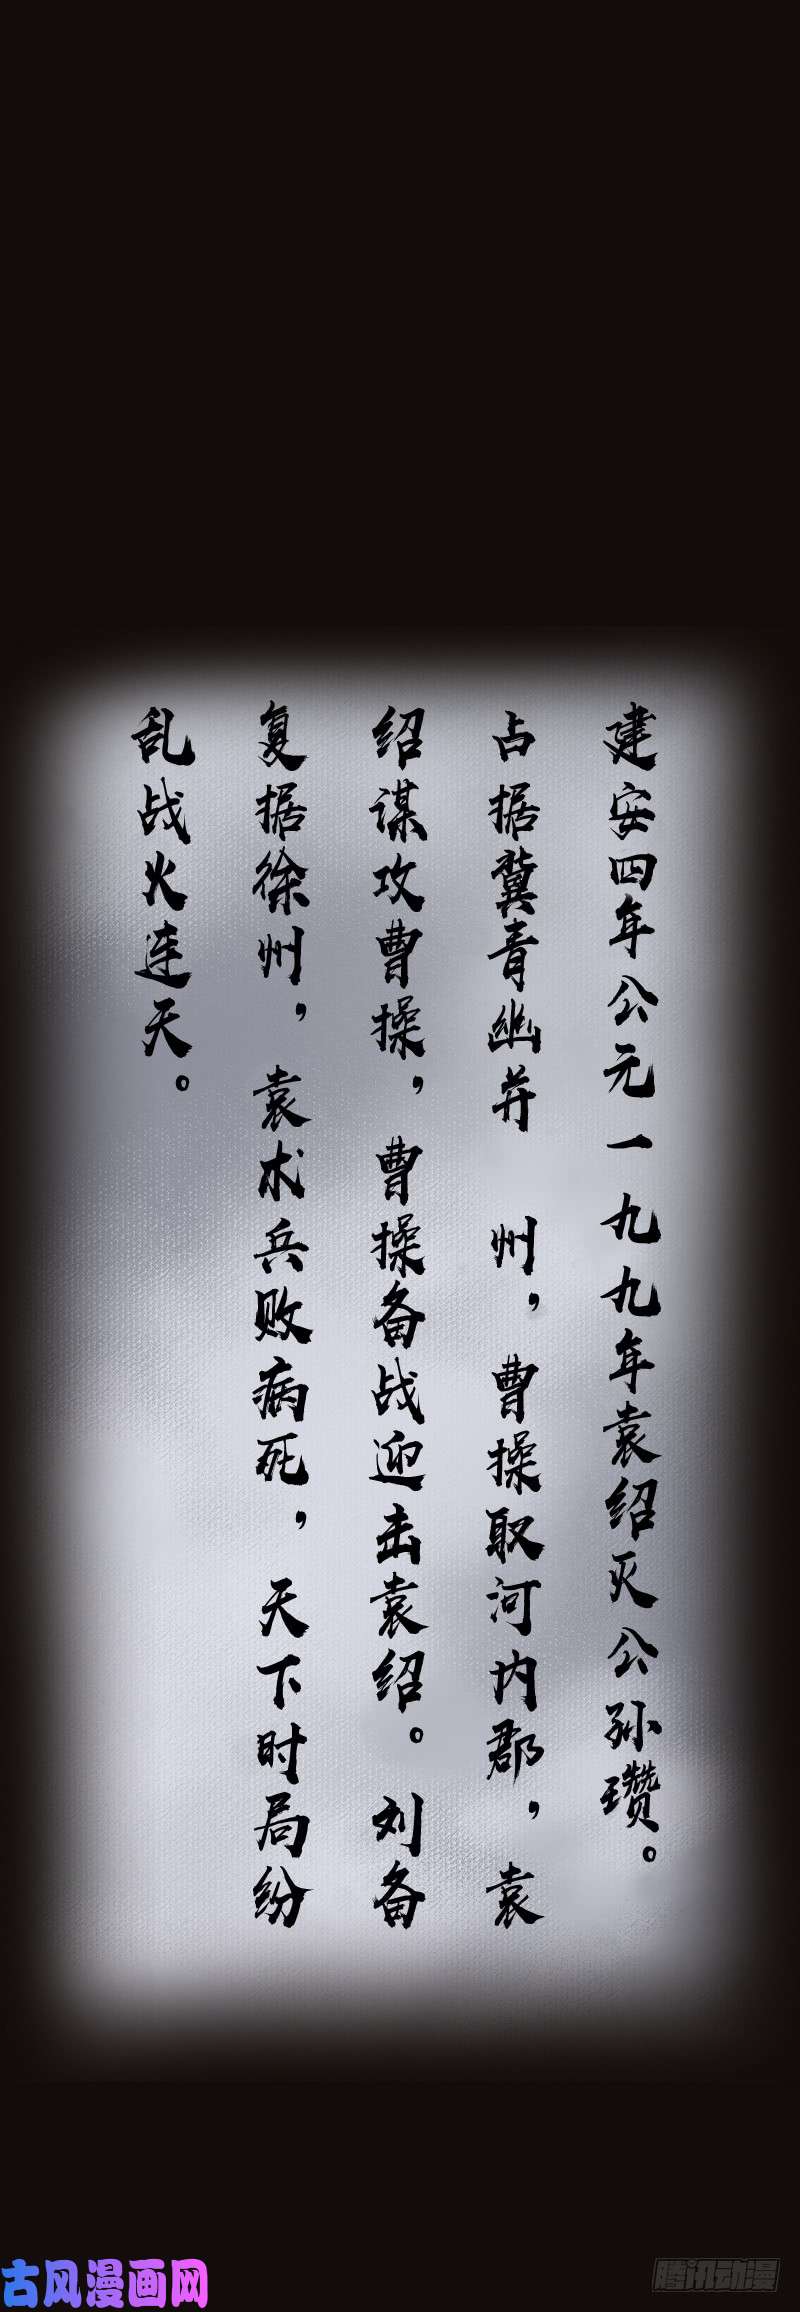 建安四年公元一九九年袁绍灭公孙瓒。
占据冀青幽并 州，曹操取河内郡，袁
绍谋攻曹操，曹操备战迎击袁绍。刘备
复据徐州，袁术兵败病死，天下时局纷
乱战火连天。
古风漫画网
腾讯动漫